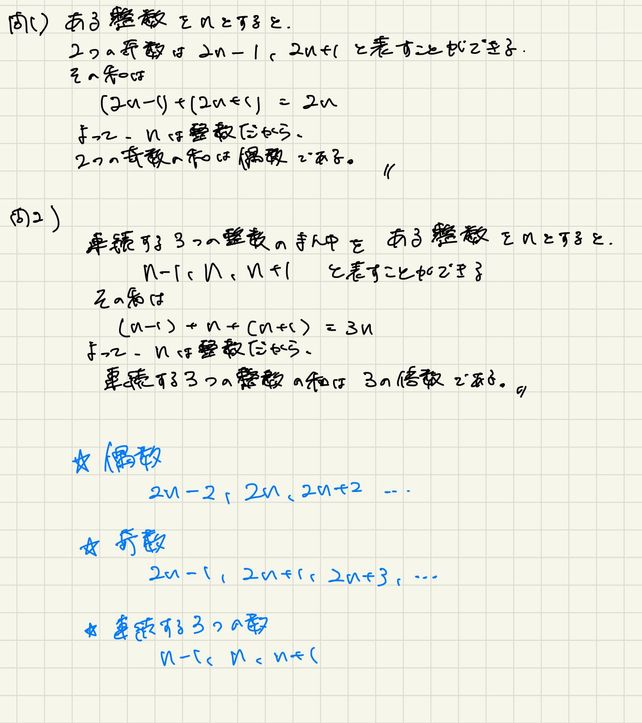 問1) ある整数をnとすると、
2つの奇数は 2n-1、2n+1 と表すことができる。
その和は
(2n-1)+(2n+1) = 2n
よって、nは整数だから、
2つの奇数の和は偶数である。〃
問2)
連続する3つの整数のまん中を ある整数をnとすると、
n-1、n、n+1 と表すことができる
その和は
(n-1) + n + (n+1) = 3n
よって、nは整数だから、
連続する3つの整数の和は 3の倍数である。〃
☆ 偶数
2n-2、2n、2n+2 …
☆ 奇数
2n-1、2n+1、2n+3、…
☆ 連続する3つの数
n-1、n、n+1